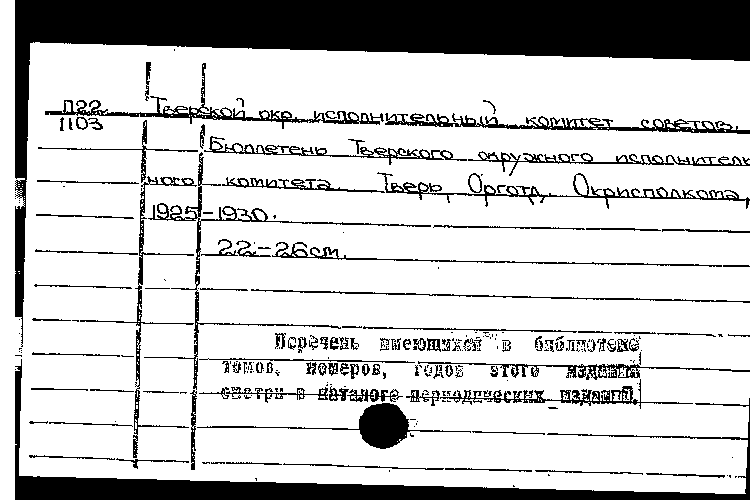 П22 Тверской окр. исполнительный комитет советов.
1103
Бюллетень Тверского окружного исполнитель
ного комитета. Тверь, Орготд. Окрисполкома,
1925-1930.
22-26см.
Перечень имеющихся в библиотеке
томов, номеров, годов этого издания
смотри в каталоге периодических изданий.